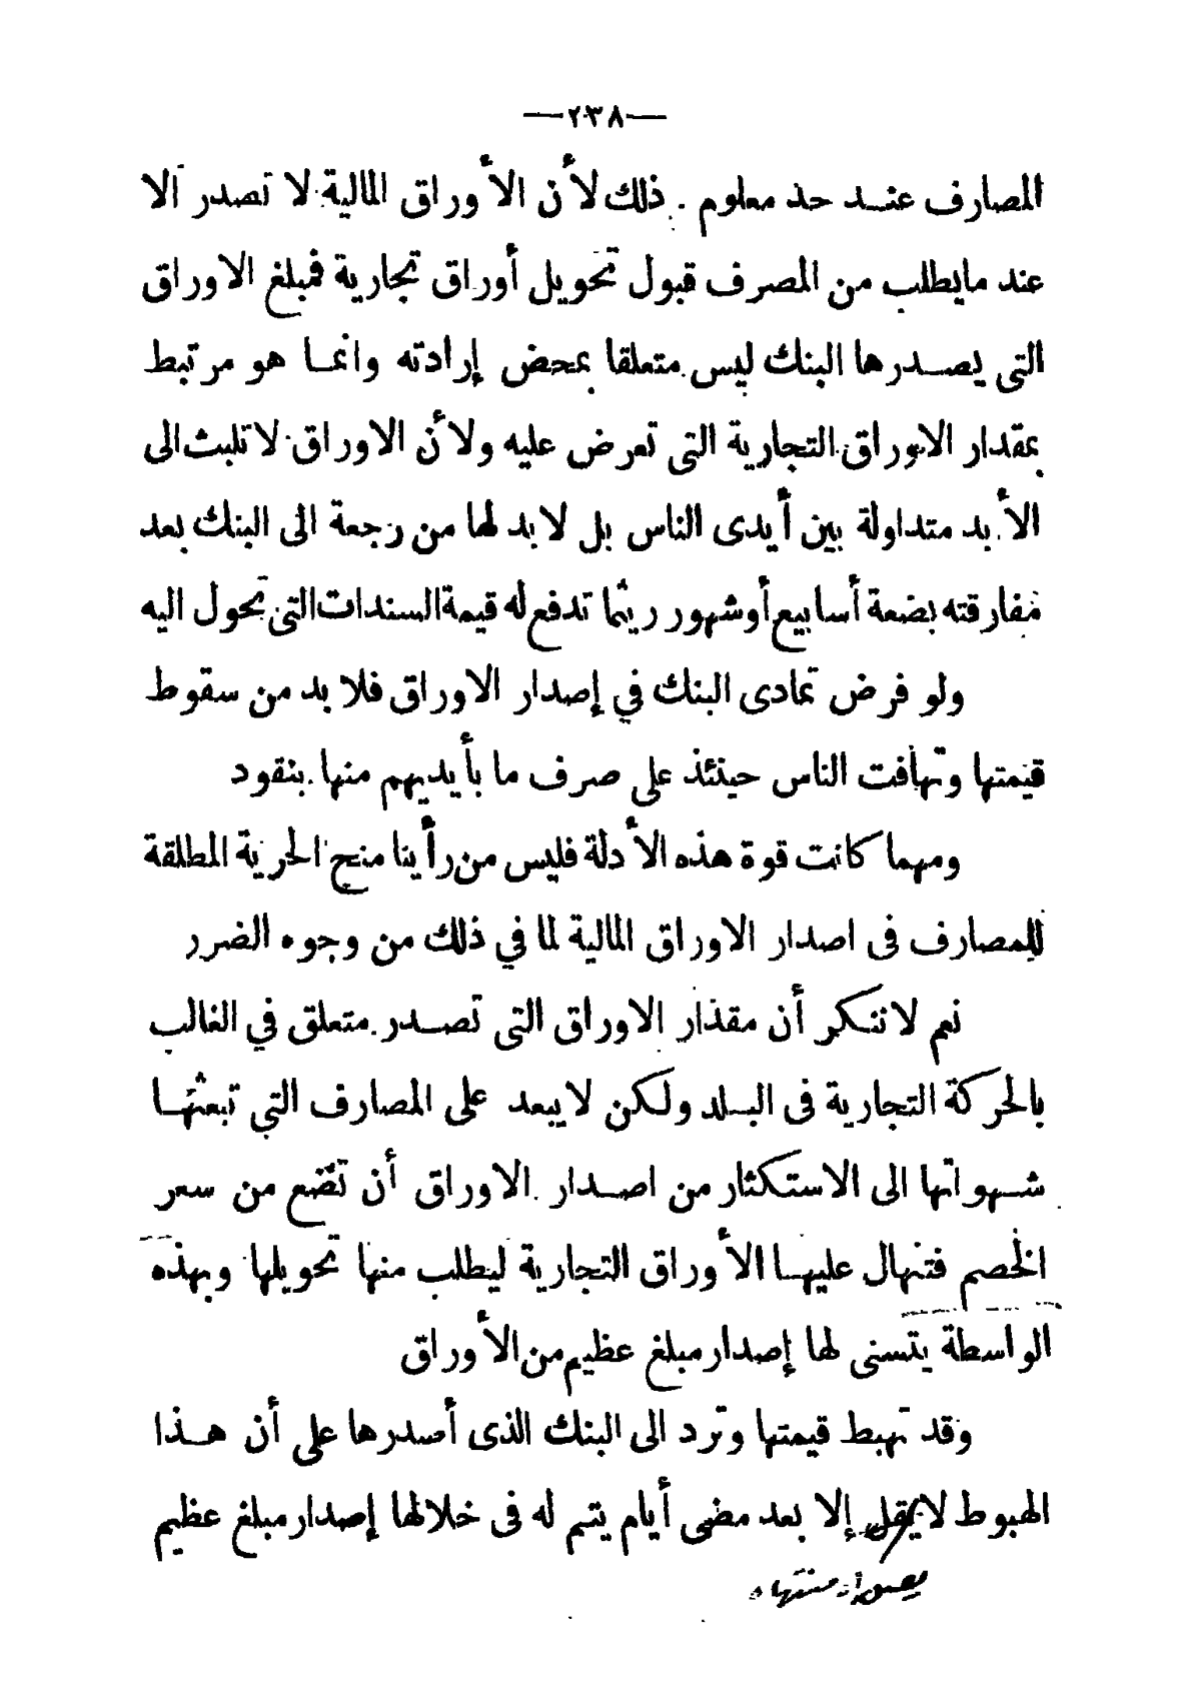 —٢٣٨—
المصارف عند حد معلوم . ذلك لأن الأوراق المالية لا تصدر الا
عند مايطلب من المصرف قبول تحويل أوراق تجارية فمبلغ الاوراق
التى يصدرها البنك ليس متعلقا بمحض إرادته وانما هو مرتبط
بمقدار الاوراق التجارية التى تعرض عليه ولأن الاوراق لا تلبث الى
الأبد متداولة بين أيدى الناس بل لا بد لها من رجعة الى البنك بعد
مفارقته بضعة أسابيع أو شهور ريثما تدفع له قيمة السندات التى تحول اليه
ولو فرض تمادى البنك في إصدار الاوراق فلا بد من سقوط
قيمتها وتهافت الناس حينئذ على صرف ما بأيديهم منها بنقود
ومهما كانت قوة هذه الأدلة فليس من رأينا منح الحرية المطلقة
للمصارف فى اصدار الاوراق المالية لما في ذلك من وجوه الضرر
نعم لا ننكر أن مقدار الاوراق التى تصدر متعلق في الغالب
بالحركة التجارية فى البلد ولكن لا يبعد على المصارف التي تبعثها
شهواتها الى الاستكثار من اصدار الاوراق أن تضع من سعر
الخصم فتنهال عليها الأوراق التجارية ليطلب منها تحويلها وبهذه
الواسطة يتسنى لها إصدار مبلغ عظيم من الأوراق
وقد تهبط قيمتها وترد الى البنك الذى أصدرها على أن هذا
الهبوط لا يقل إلا بعد مضى أيام يتم له فى خلالها إصدار مبلغ عظيم